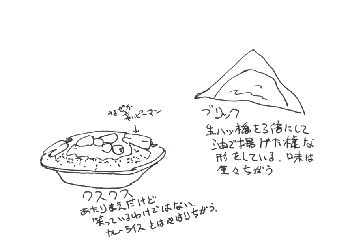 なぜか
辛いピーマン
クスクス
あたりまえだけど
笑っているわけではない。
カレーライスとはやはりちがう。
ブリック
生八ッ橋を3倍にして
油で揚げた様な
形をしている。味は
全々ちがう